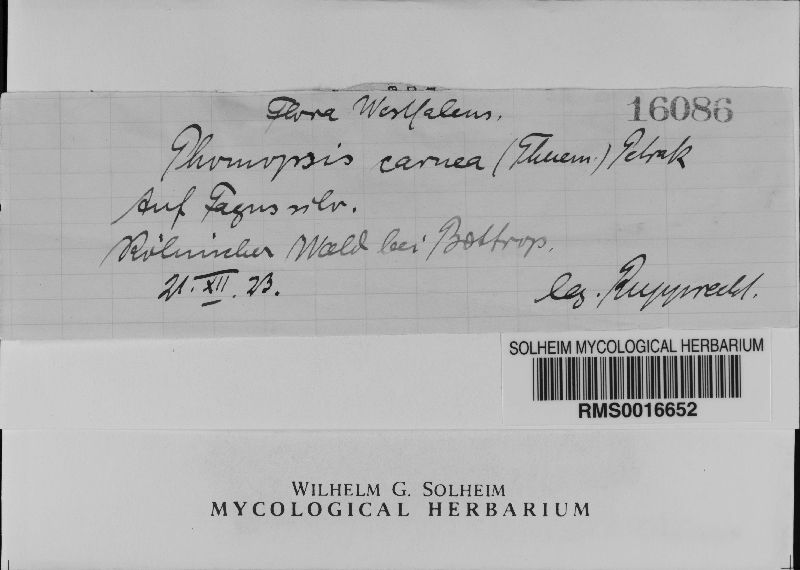 Flora Westfalens.
16086
Phomopsis carnea (Thuem.) Petrak
Auf Fagus silv.
Kölnischer Wald bei Bottrop.
21. XII. 23.
leg. Rupprecht.
SOLHEIM MYCOLOGICAL HERBARIUM
RMS0016652
WILHELM G. SOLHEIM
MYCOLOGICAL HERBARIUM